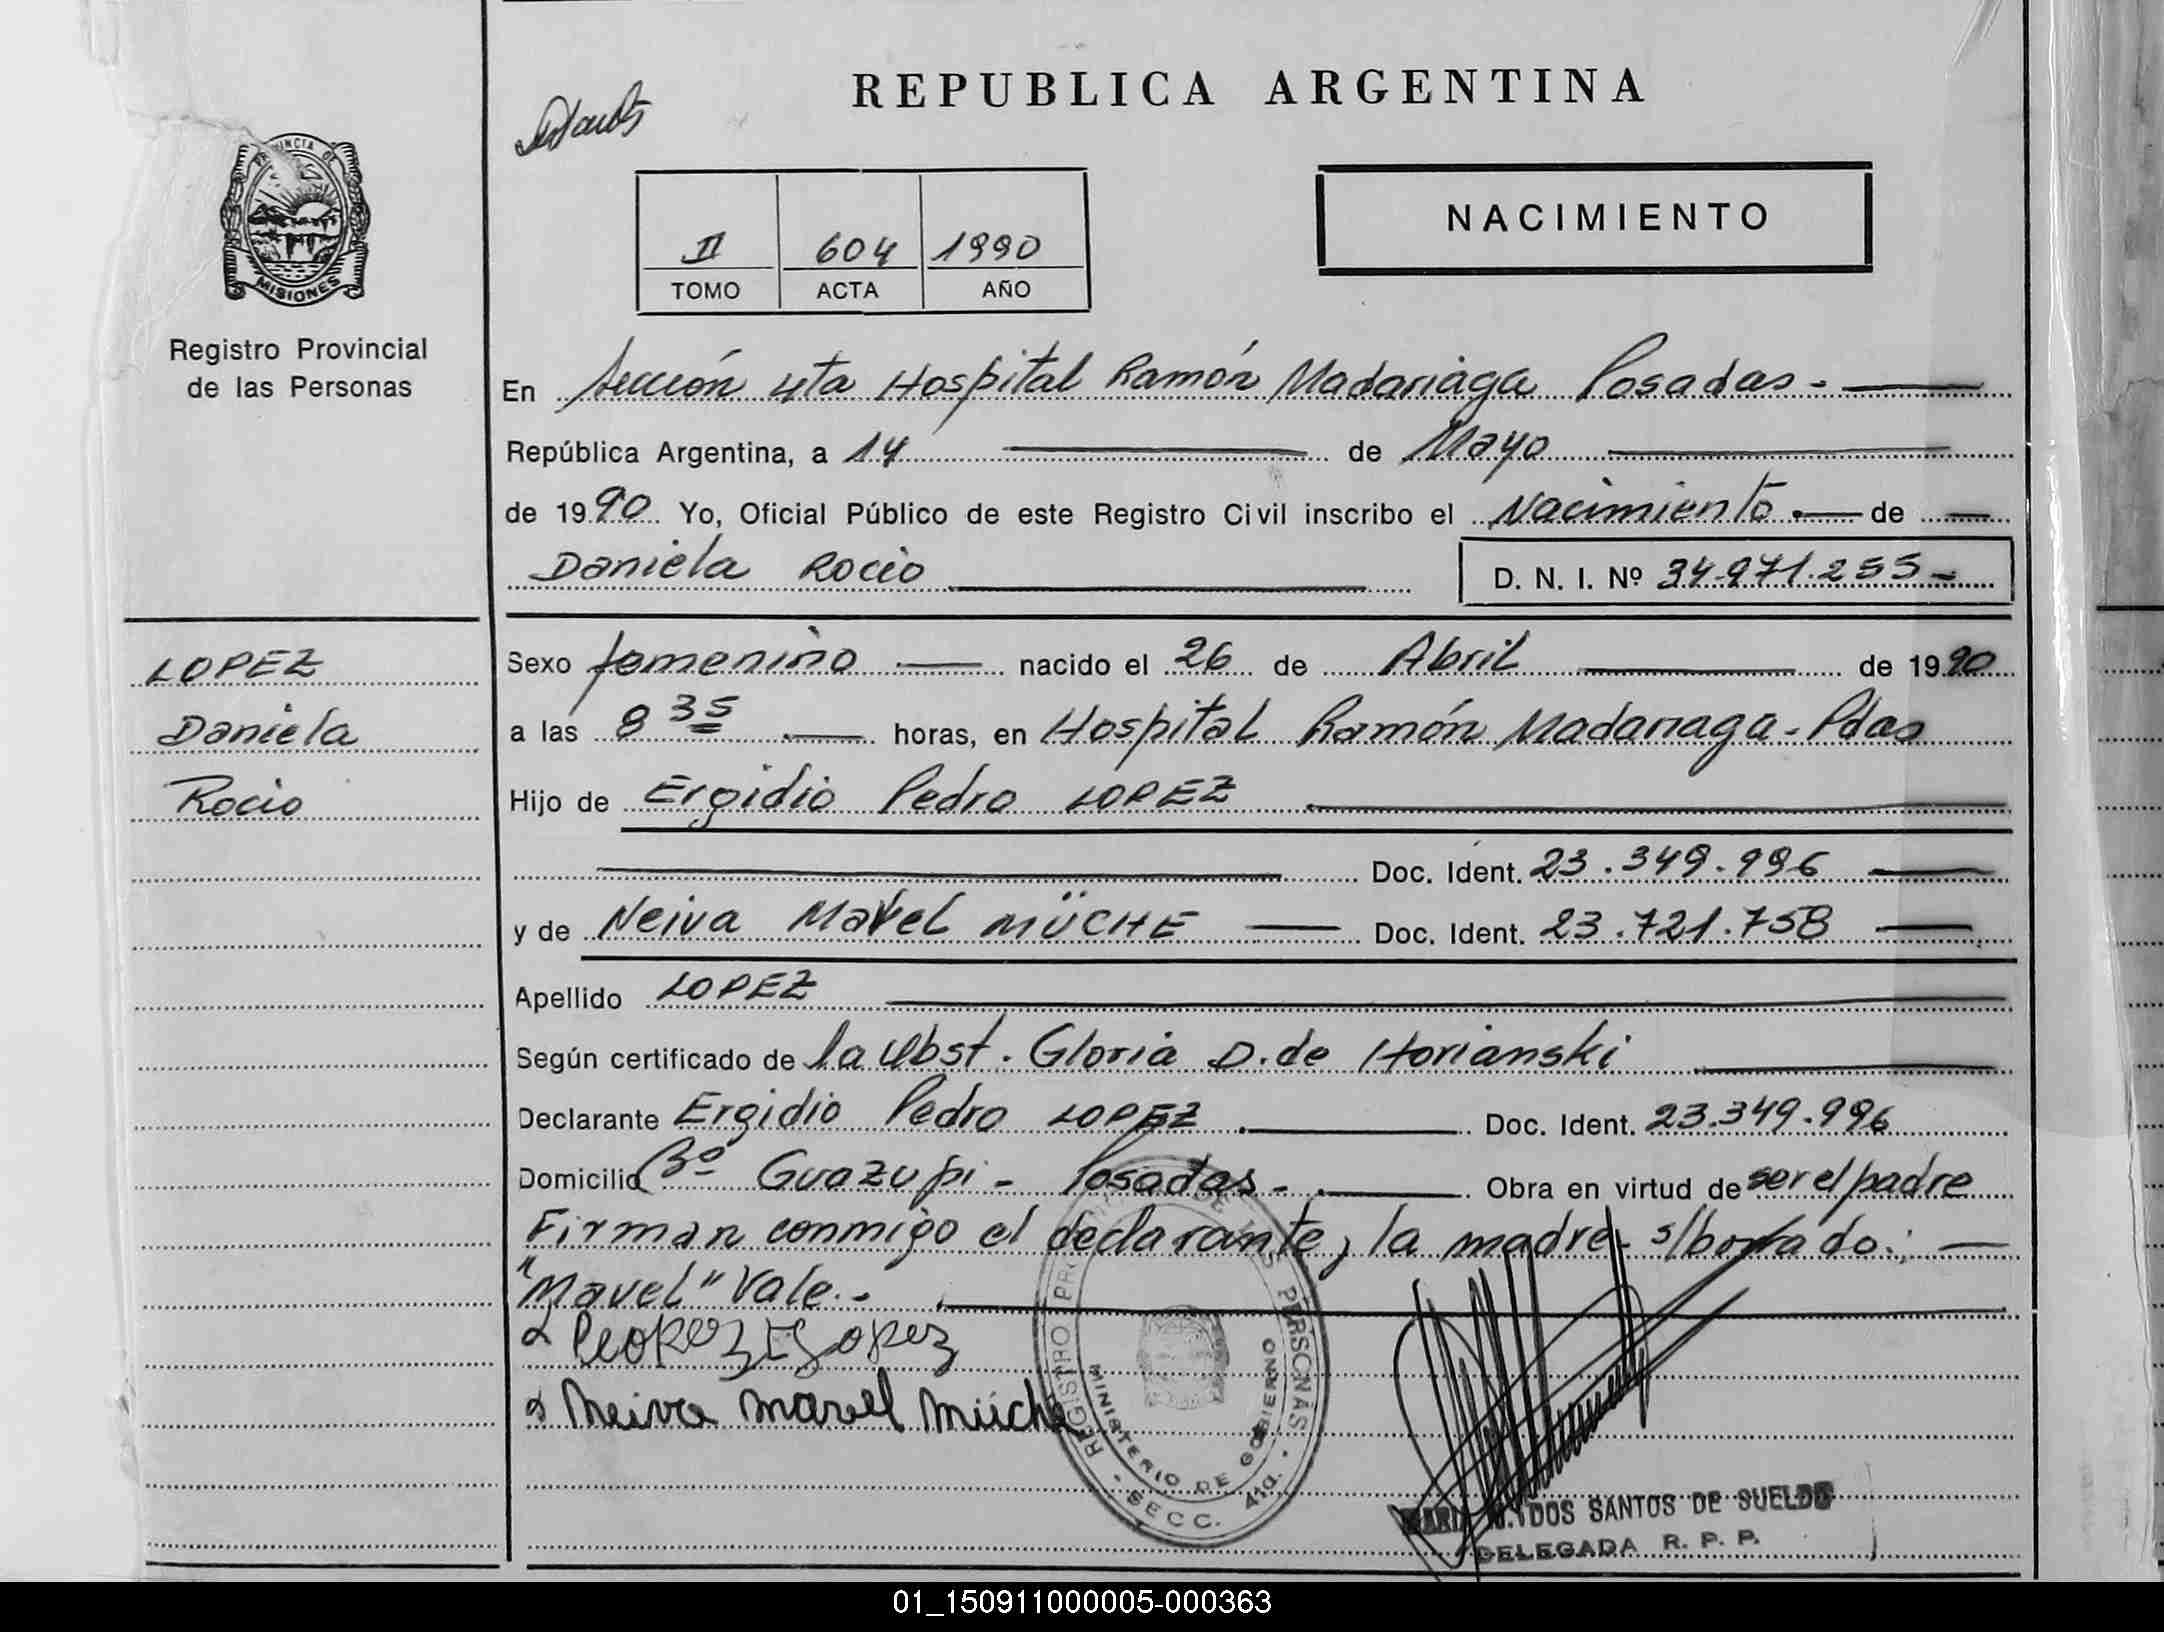 REPUBLICA ARGENTINA
PROVINCIA DE
MISIONES
Registro Provincial
de las Personas
II 604 1990
TOMO ACTA AÑO
NACIMIENTO
En Sección 4ta Hospital Ramón Madariaga Posadas.-
República Argentina, a 14 de Mayo
de 1990 Yo, Oficial Público de este Registro Civil inscribo el Nacimiento.- de
Daniela Rocio D. N. I. Nº 34.971.255-
LOPEZ
Daniela
Rocio
Sexo femenino nacido el 26 de Abril de 1990
a las 8 35 horas, en Hospital Ramón Madariaga - Pdas
Hijo de Ergidio Pedro LOPEZ
Doc. Ident. 23.349.996
y de Neiva Mavel MÜCHE Doc. Ident. 23.721.758
Apellido LOPEZ
Según certificado de la Obst. Gloria D. de Horianski
Declarante Ergidio Pedro LOPEZ Doc. Ident. 23.349.996
Domicilio Bº Guazupi - Posadas - Obra en virtud de ser el padre
Firman conmigo el declarante, la madre - s/borrado:
"Mavel" Vale.-
Lopez
Neiva Mavel Müche
REGISTRO DE LAS PERSONAS
MINISTERIO DE GOBIERNO
SECC. 4ta.
DOS SANTOS DE SUELDO
DELEGADA R. P. P.
01_150911000005-000363